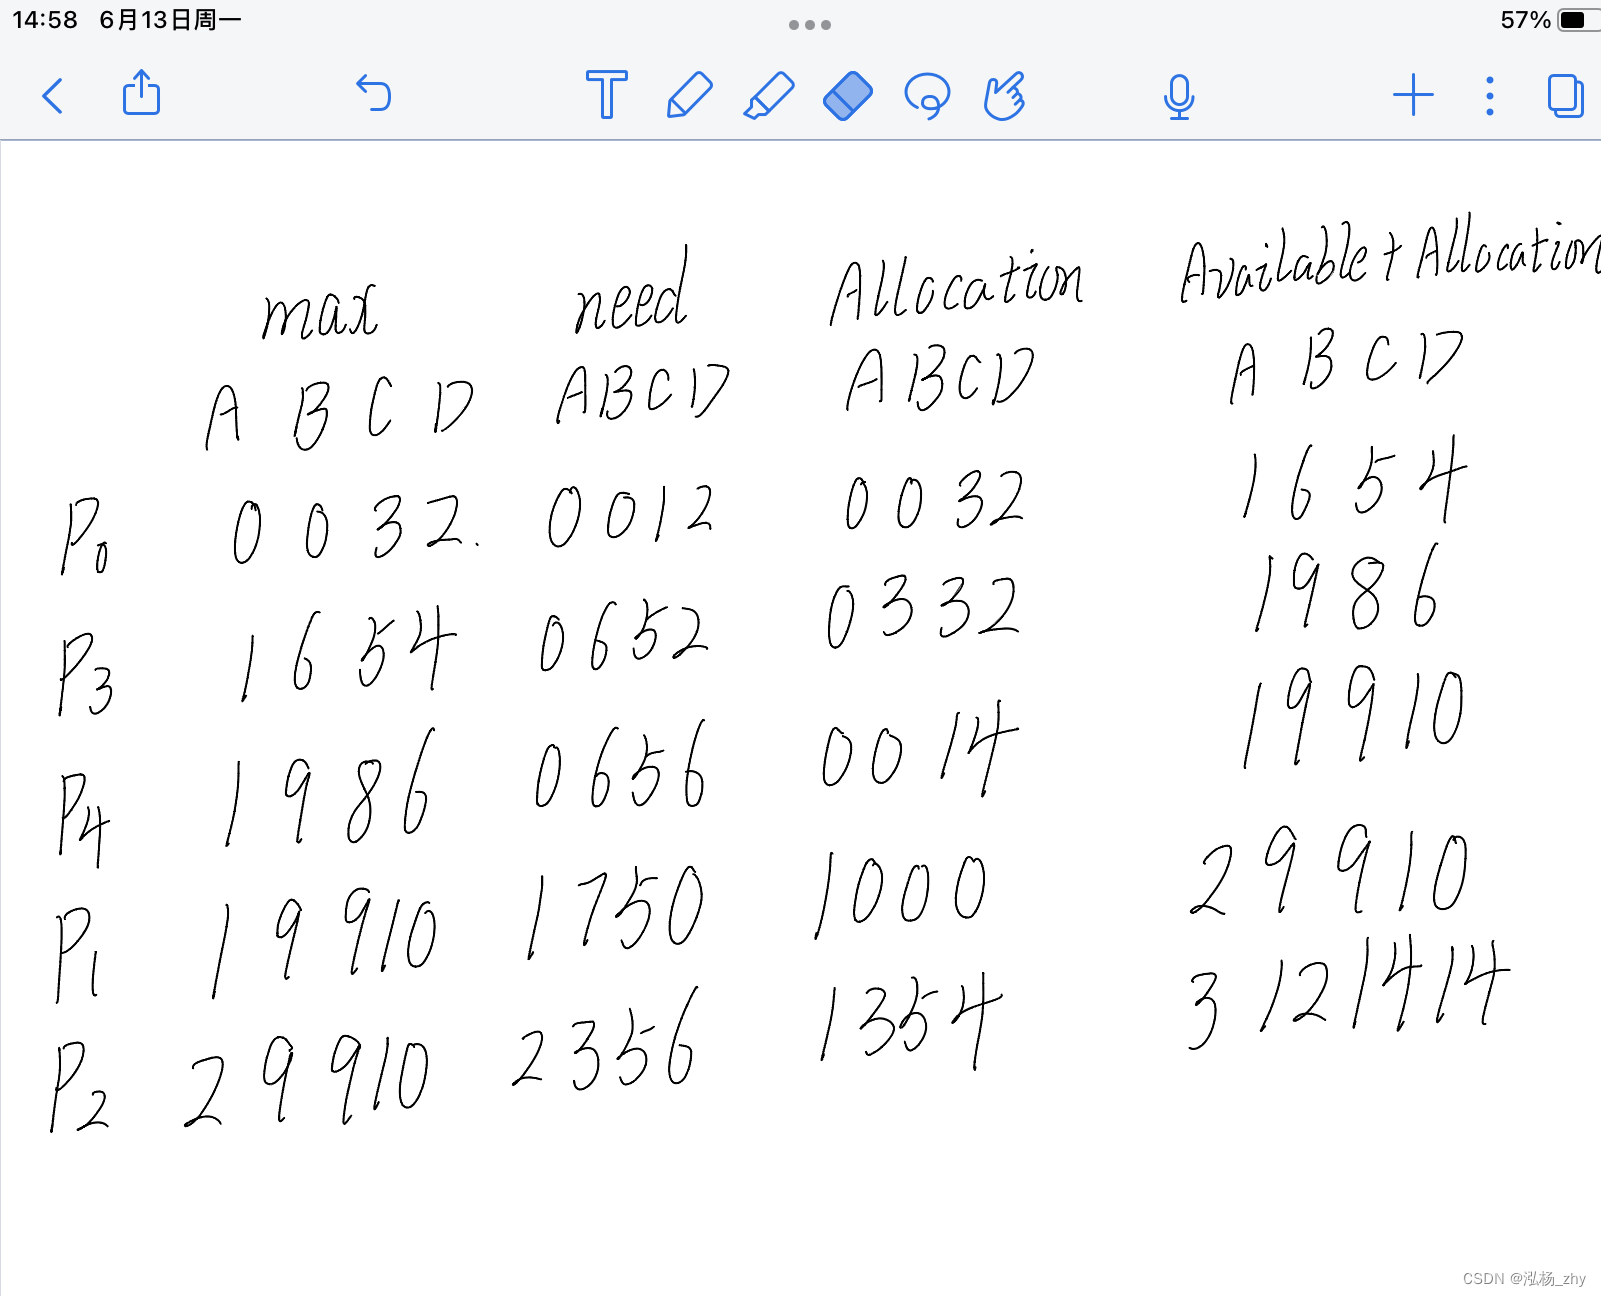 14:58 6月13日周一 57%
max need Allocation Available + Allocation
A B C D A B C D A B C D A B C D
P0 0 0 3 2. 0 0 1 2 0 0 3 2 1 6 5 4
P3 1 6 5 4 0 6 5 2 0 3 3 2 1 9 8 6
P4 1 9 8 6 0 6 5 6 0 0 1 4 1 9 9 10
P1 1 9 9 10 1 7 5 0 1 0 0 0 2 9 9 10
P2 2 9 9 10 2 3 5 6 1 3 5 4 3 12 14 14
CSDN @泓杨_zhy